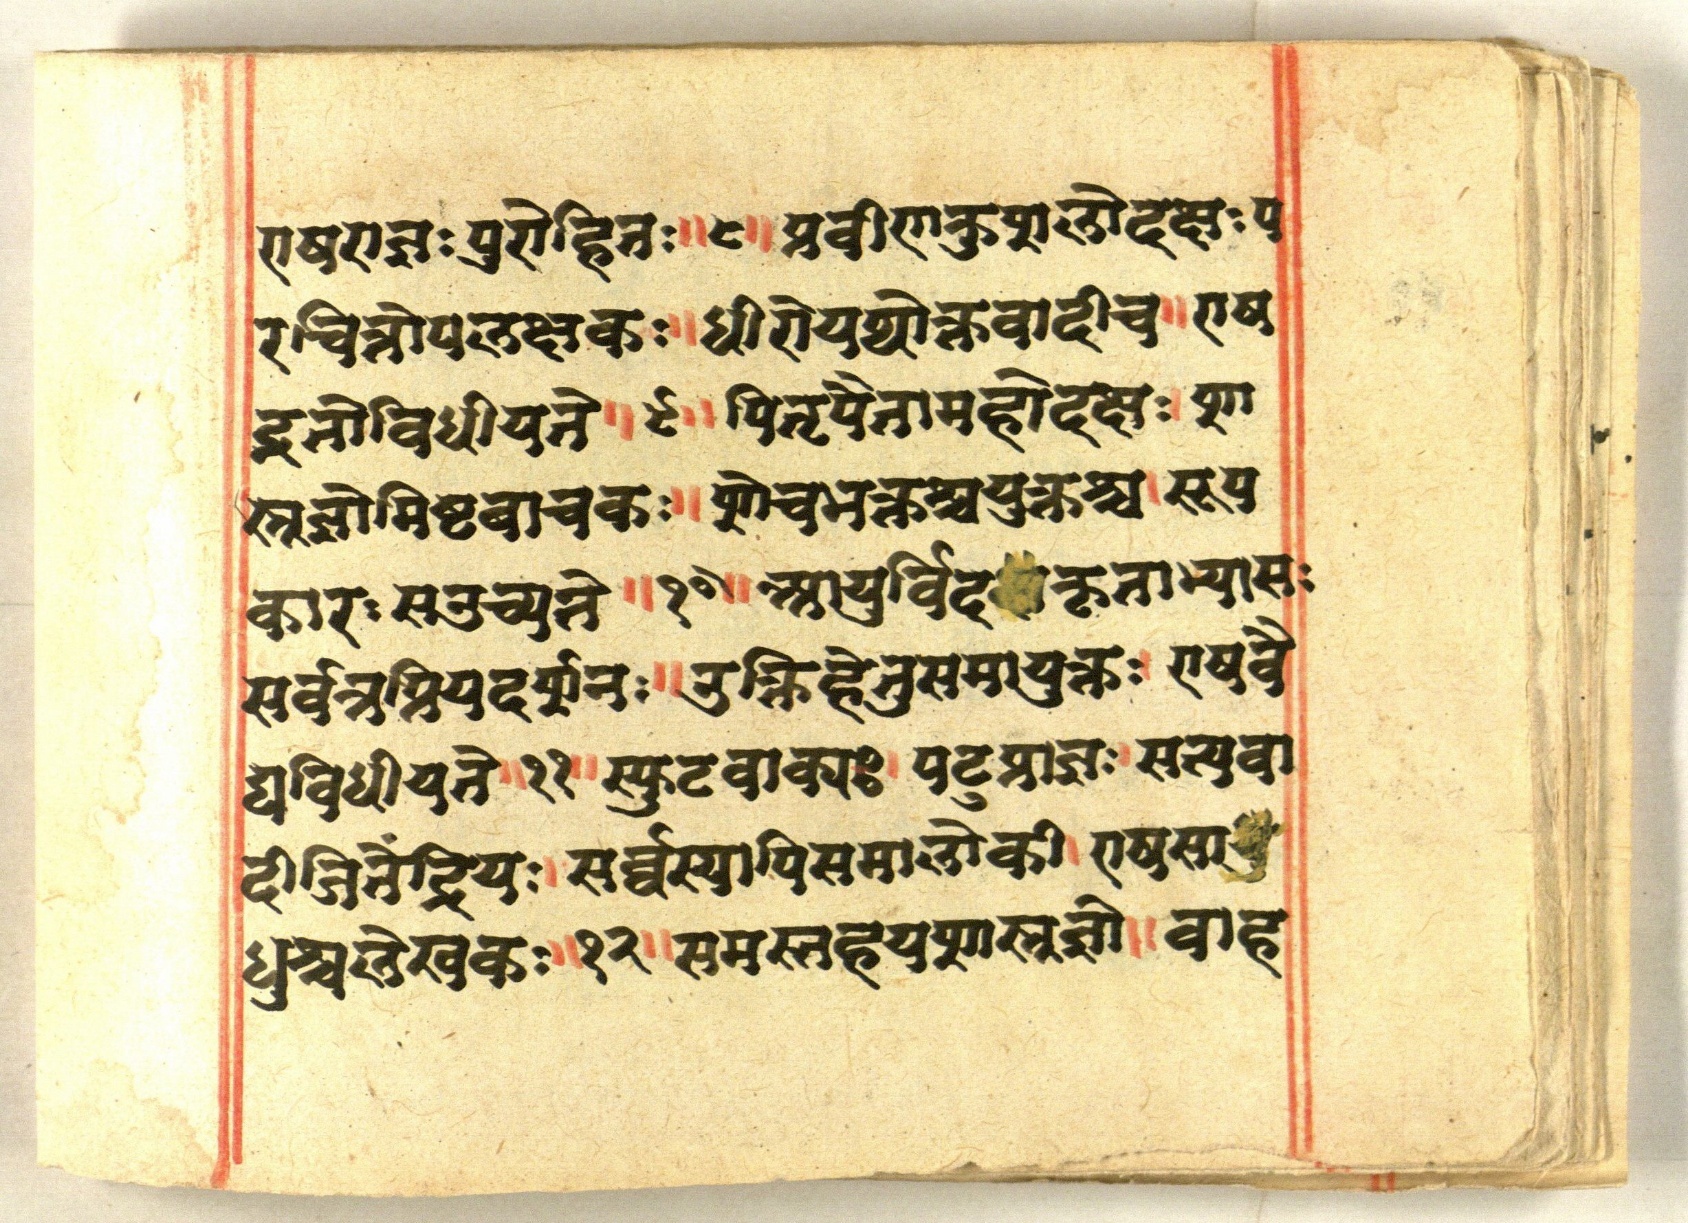 एषराज्ञः पुरोहितः॥८॥ प्रवीणकुशलोदक्षः प
रचित्तोपलक्षकः॥ धीरोयथोक्तवादीच॥ एष
दूतोविधीयते॥९॥ पितृपैतामहोदक्षः। शा
स्त्रज्ञोमिष्टबाचकः॥ शौचभक्तश्चयुक्तश्च। सूप
कारः सउच्यते॥१०॥ आयुर्विद कृताभ्यासः
सर्वत्रप्रियदर्शनः॥ उक्तिहेतुसमायुक्तः। एषवै
द्यविधीयते॥११॥ स्फुटवाक्यः। पटुप्राज्ञः। सत्यवा
दीजितेंद्रियः। सर्व्वस्यापिसमालोकी। एषसा
धुश्चलेखकः॥१२॥ समस्तहयशास्त्रज्ञो॥ वाह